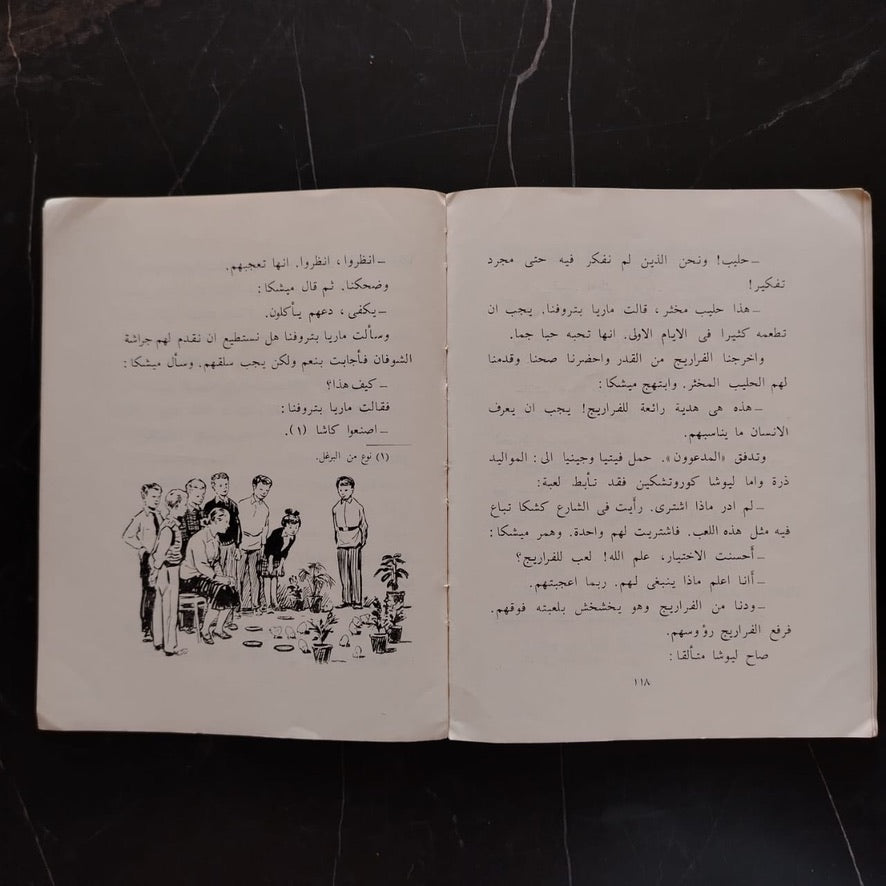 ــ حليب! ونحن الذين لم نفكر فيه حتى مجرد
تفكير!
ــ هذا حليب مخثر، قالت ماريا بتروفنا. يجب ان
تطعمه كثيرا فى الايام الاولى. انها تحبه حبا جما.
واخرجنا الفراريج من القدر واحضرنا صحنا وقدمنا
لهم الحليب المخثر. وابتهج ميشكا:
ــ هذه هى هدية رائعة للفراريج! يجب ان يعرف
الانسان ما يناسبهم.
وتدفق «المدعوون». حمل فيتيا وجينيا الى: المواليد
ذرة واما ليوشا كوروتشكين فقد تأبط لعبة:
ــ لم ادر ماذا اشترى. رأيت فى الشارع كشكا تباع
فيه مثل هذه اللعب. فاشتريت لهم واحدة. وهمر ميشكا:
ــ أحسنت الاختيار، علم الله! لعب للفراريج؟
ــ أانا اعلم ماذا ينبغى لهم. ربما اعجبتهم.
ــ ودنا من الفراريج وهو يخشخش بلعبته فوقهم.
فرفع الفراريج رؤوسهم.
صاح ليوشا متألقا:
١١٨
ــ انظروا، انظروا. انها تعجبهم.
وضحكنا. ثم قال ميشكا:
ــ يكفى، دعهم يأكلون.
وسألت ماريا بتروفنا هل نستطيع ان نقدم لهم جراشة
الشوفان فأجابت بنعم ولكن يجب سلقهم. وسأل ميشكا:
ــ كيف هذا؟
فقالت ماريا بتروفنا:
ــ اصنعوا كاشا (١).
(١) نوع من البرغل.